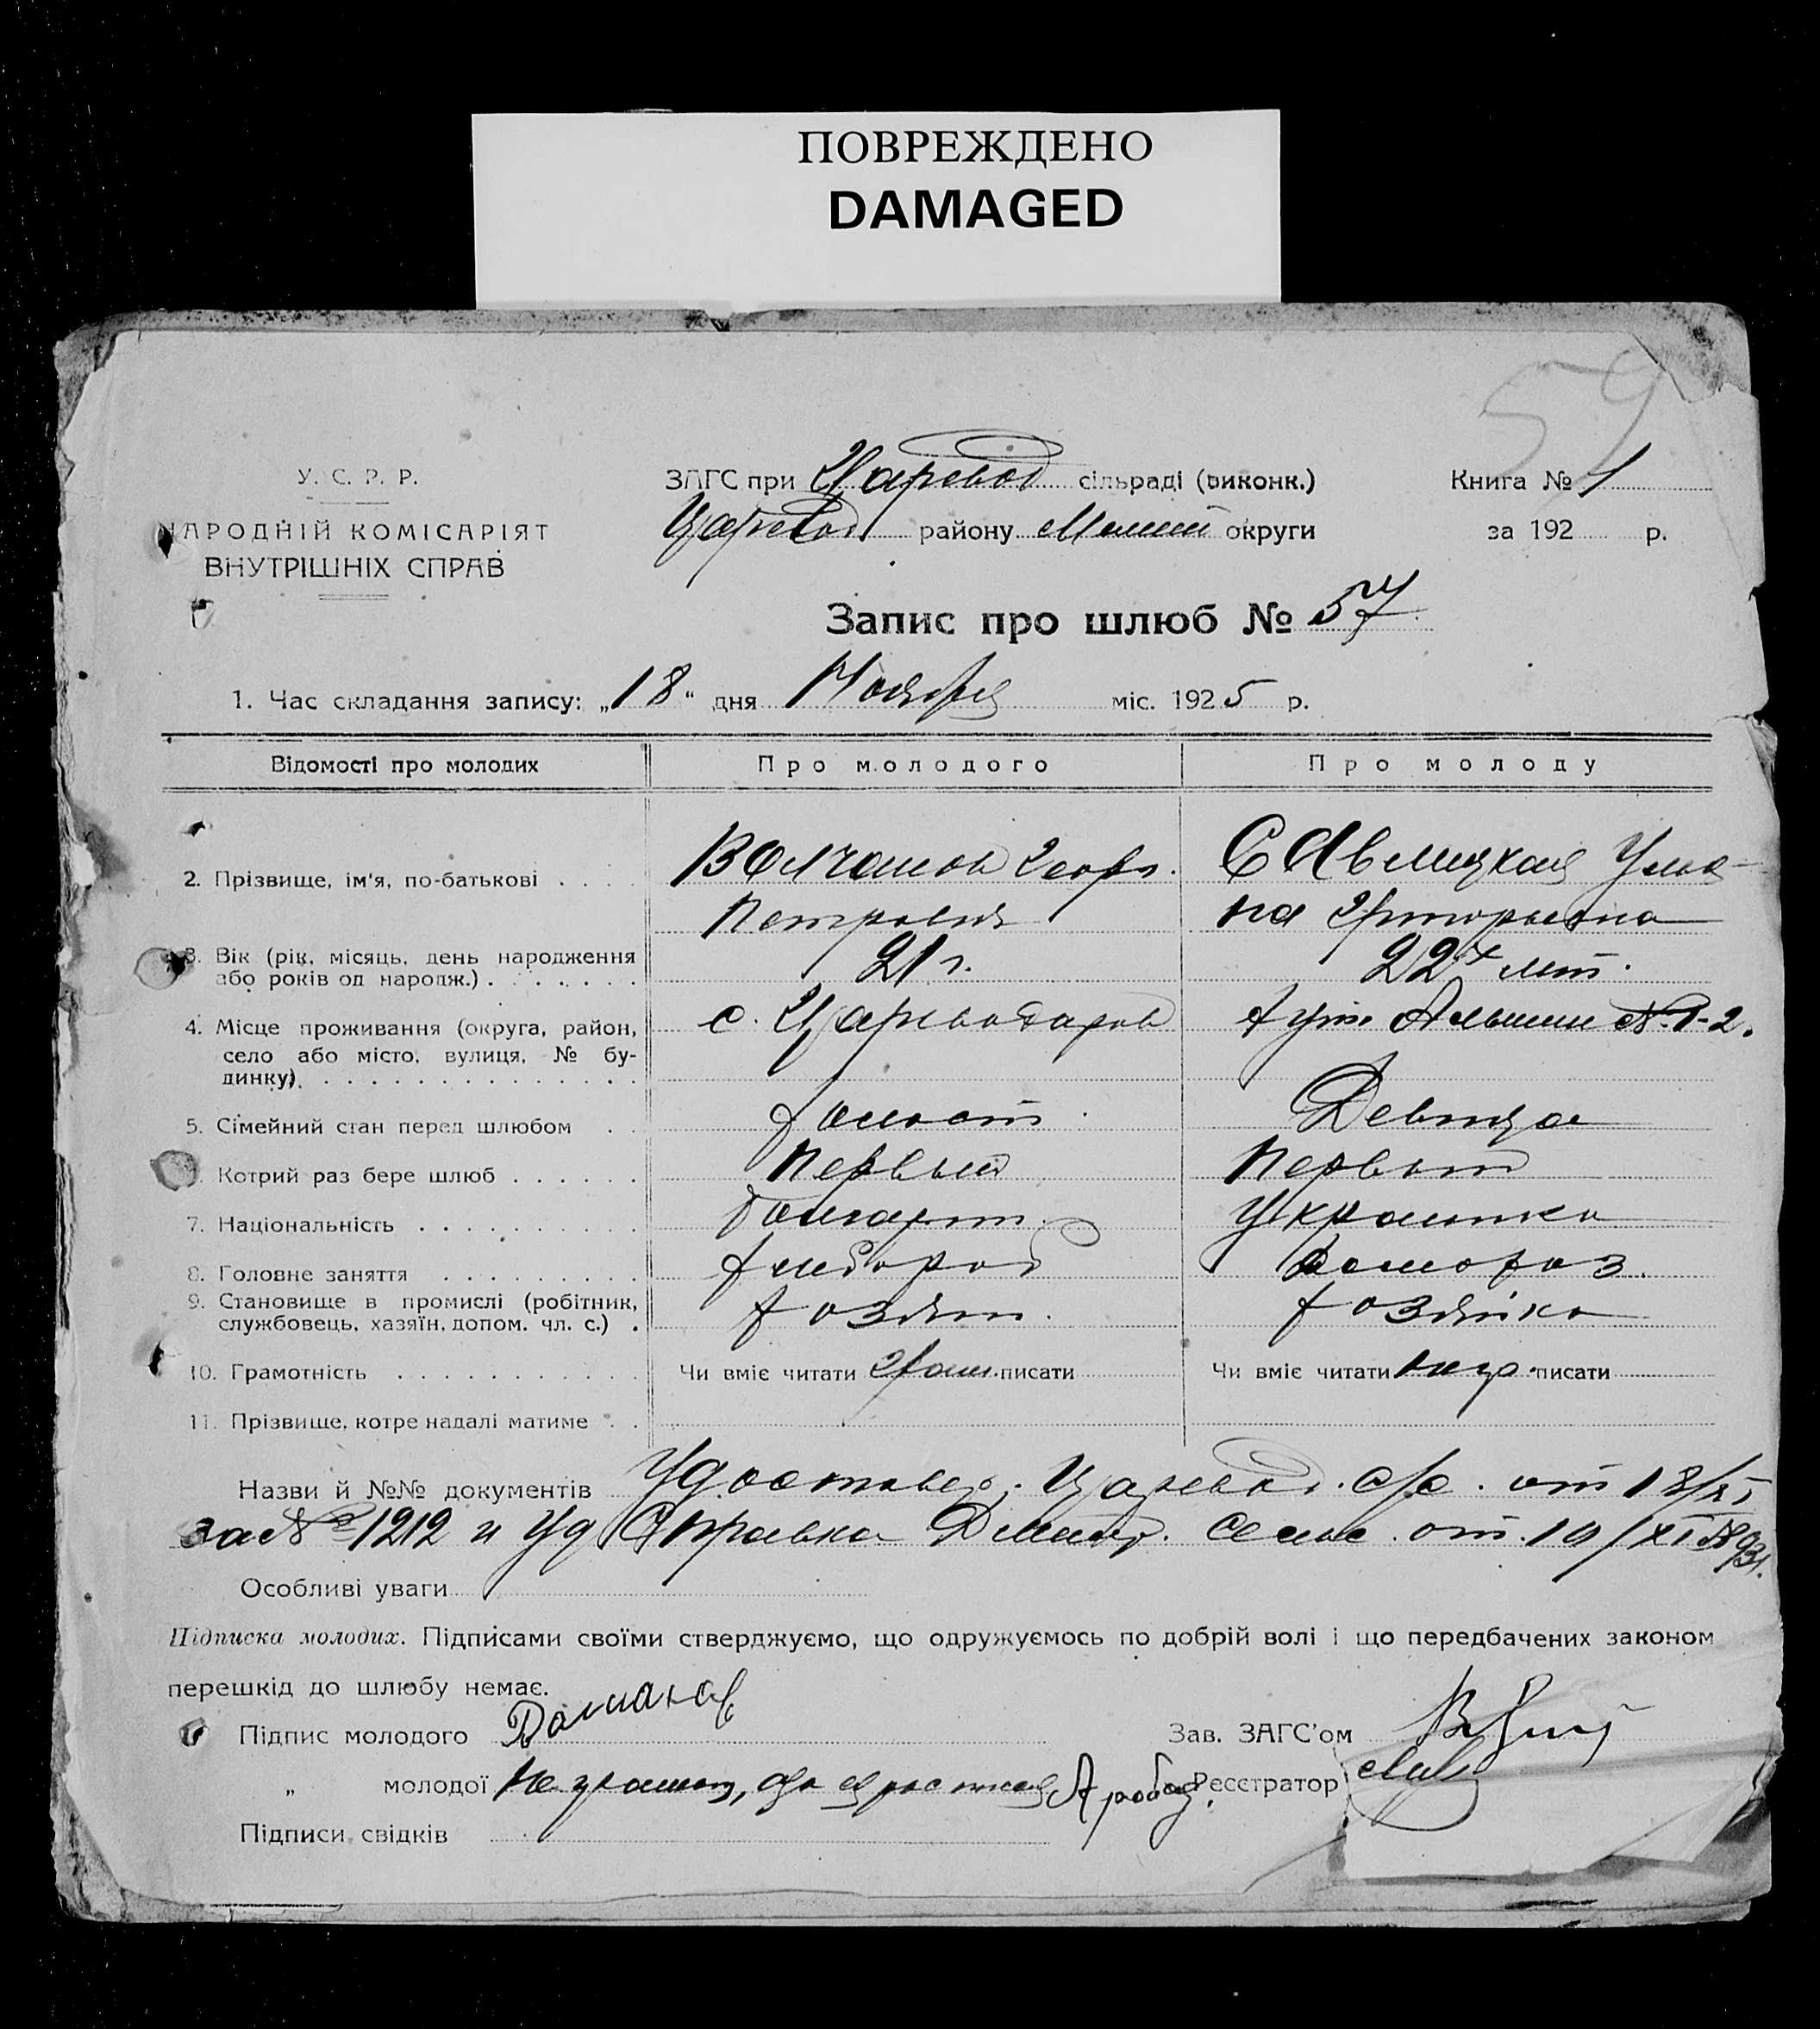 ПОВРЕЖДЕНО
DAMAGED
59
У. С. Р. Р.
НАРОДНІЙ КОМІСАРІЯТ
ВНУТРІШНІХ СПРАВ
ЗАГС при Царевод сільраді (виконк.)
Царевод району округи
Книга № 1
за 192 р.
Запис про шлюб № 57
1. Час складання запису: „18“ дня Ноября міс. 1925 р.
Відомості про молодих
Про молодого
Про молоду
2. Прізвище, ім'я, по-батькові
Георг.
Петрович
Улья-
на Григорьевна
3. Вік (рік, місяць, день народження
або років од народж.)
21 г.
22х лет.
4. Місце проживання (округа, район,
село або місто, вулиця, № бу-
динку)
с. Цареводаров
хут. № 2.
5. Сімейний стан перед шлюбом
холост
Девица
Котрий раз бере шлюб
Первый
Первый
7. Національність
болгарин
Украинка
8. Головне заняття
хлебороб
домохоз.
9. Становище в промислі (робітник,
службовець, хазяїн, допом. чл. с.)
хозяин.
хозяйка
10. Грамотність
Чи вміє читати грам. писати
Чи вміє читати негр. писати
11. Прізвище, котре надалі матиме
Назви й №№ документів Удостовер. Царевод. с/с. от 18/XI
за № 1212 и Уд Справка от 19/XI № 931.
Особливі уваги
Підписка молодих. Підписами своїми стверджуємо, що одружуємось по добрій волі і що передбачених законом
перешкід до шлюбу немає.
Підпис молодого
Зав. ЗАГС'ом
„ молодої Неграмот, за ея расписал
Реєстратор
Підписи свідків